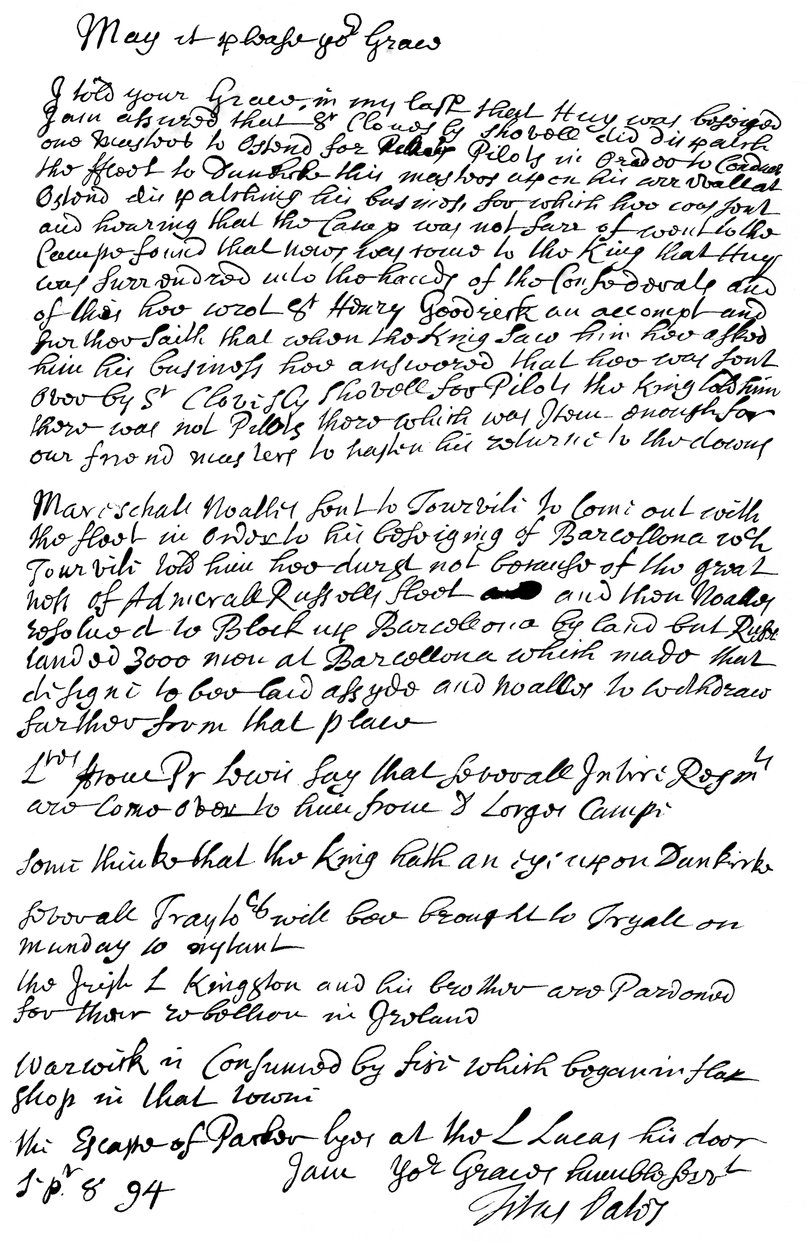 May it please yor Grace
I told your Grace in my last that Huy was beseiged
I am assured that Sr Clovesly Shovell did dispatch
one Masters to Ostend for Pilots in Order to Conduct
the ffleet to Dunkirke this masters upon his arrivall at
Ostend dispatching his business for which hee was sent
and hearing that the Camp was not fare of went to the
Campe found that news was come to the King that Huy
was Surrendred into the hands of the Confederats and
of this hee wrot Sr Henry Goodrick an accompt and
further saith that when the King saw him hee asked
him his business hee answered that hee was sent
over by Sr Clovisly Shovell for Pilots the King told him
there was not Pilots there which was Item enough for
our friend masters to hasten his returne to the downs
Mareschall Noalles sent to Tourvile to Come out with
the fleet in Order to his beseiging of Barcellona wch
Tourvile told him hee durst not because of the great
ness of Admerall Russells fleet and then Noalles
resolved to Block up Barcellona by land but
landed 3000 men at Barcellona which made that
designe to bee laid assyde and Noalles to withdraw
further from that place
Lres from Pr Lewis say that severall Intire Regmts
are Come over to him from D Lorges Campe
Some thinke that the King hath an eye upon Dunkirke
Severall Traytors will bee brought to Tryall on
munday 10 instant
the Irish L Kingston and his brother are Pardoned
for their rebellion in Ireland
Warwick is Consumed by fire which began in flax
shop in that towne
the Escape of Parker lyes at the L Lucas his door
I am Yor Graces humble servt
Sepr 8 94
Titus Oates